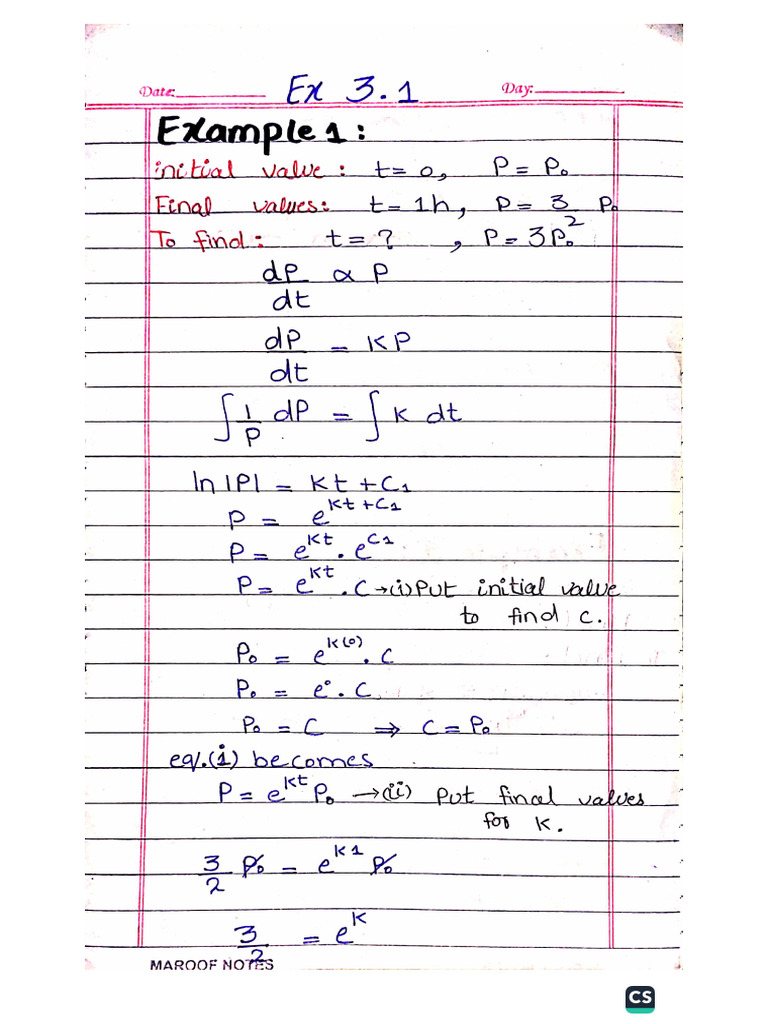 Date: Ex 3.1 Day:
Example 1:
initial value: t=0, P=P₀
Final values: t=1h, P=3/2 P₀
To find: t=? , P=3P₀
dP/dt ∝ P
dP/dt = KP
∫1/P dP = ∫K dt
ln|P| = Kt+C₁
P = e^(Kt+C₁)
P = e^(Kt) . e^(C₁)
P = e^(Kt) . C →(i) Put initial value
to find c.
P₀ = e^(K(0)) . C
P₀ = e° . C
P₀ = C ⇒ C = P₀
eq.(i) becomes
P = e^(Kt) P₀ →(ii) Put final values
for K.
3/2 P₀ = e^(K1) P₀
3/2 = e^K
MAROOF NOTES
CS